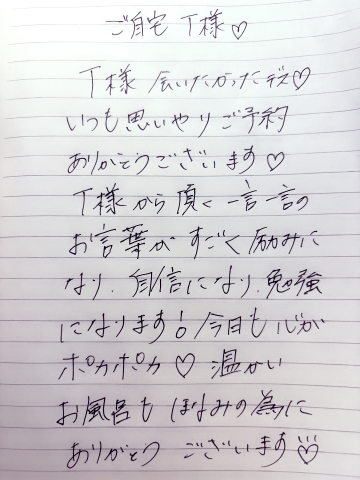 ご自宅 T様♡
T様 会いたかったデス♡
いつも思いやりご予約
ありがとうございます♡
T様から頂く一言一言の
お言葉がすごく励みに
なり、自信になり、勉強
になります!今日も心が
ポカポカ♡温かい
お風呂も ほなみの為に
ありがとう ございます♡